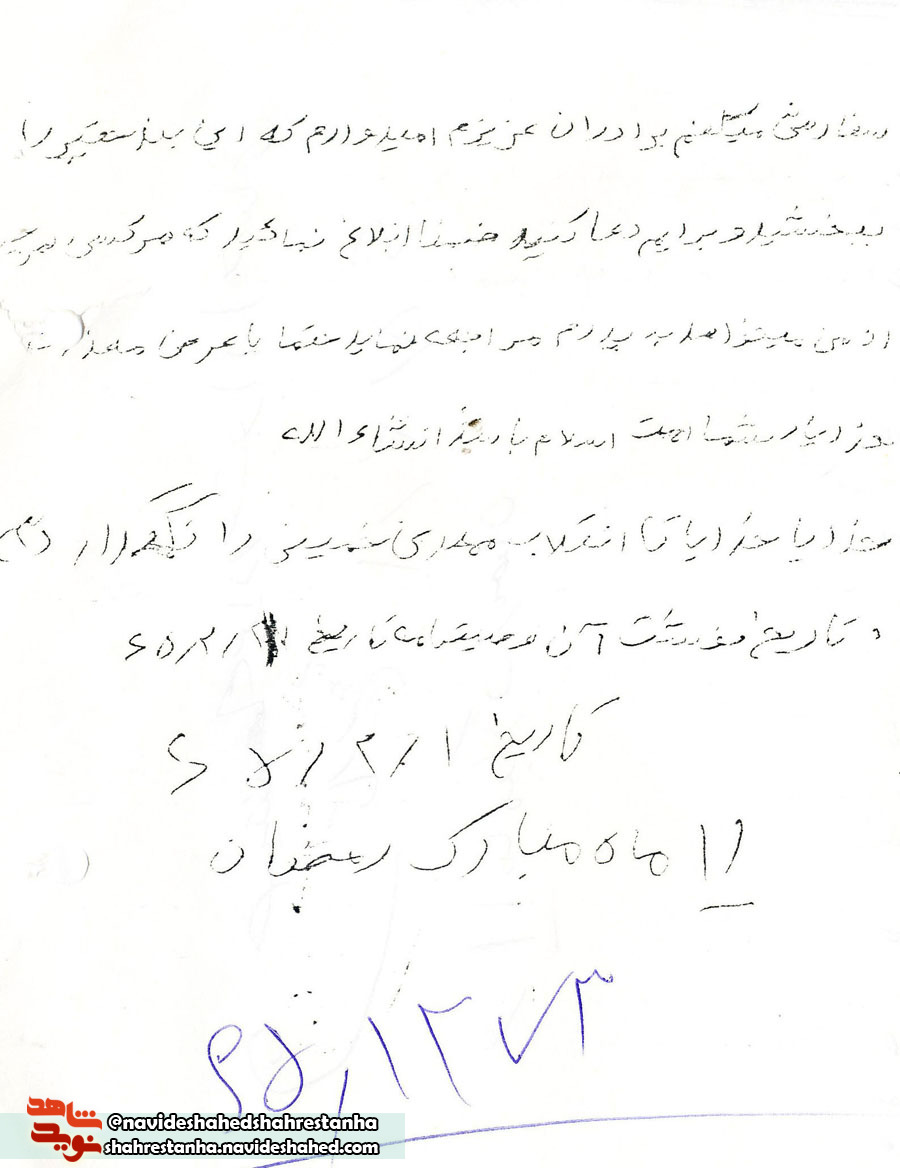 سفارش میکنم برادران عزیزم امیدوارم که این بنده حقیر را
ببخشید و برایم دعا کنید ضمنا ابلاغ نمائید که هر کسی هر چه
از من میخواهد به پدرم مراجعه نماید حتما با عرض معذرت
خدا یار شما امت اسلام باشد انشاء الله
خدایا خدایا تا انقلاب مهدی خمینی را نگهدار
تاریخ نوشت آن وصیتنامه تاریخ ۶۵/۲/
تاریخ ۶۵/۳/۱
۱۲ ماه مبارک رمضان
۶۵/۱۲۷۳
شاهد نوید
@navideshahedshahrestanha
shahrestanha.navideshahed.com